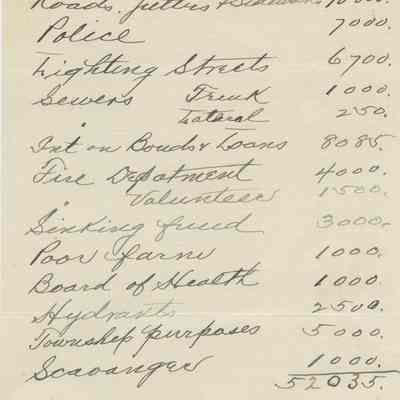 Roads, gutters & Sidewalks 10000.
Police 7000.
Lighting Streets 6700.
Sewers Trunk 1000.
" Lateral 250.
Int on Bonds & Loans 8085.
Fire Depatment 4000.
" Volunteer 1500.
Sinking fund 3000.
Poor farm 1000.
Board of Health 1000.
Hydrants 2500.
Township purposes 5000.
Scavanger 1000.
52035.